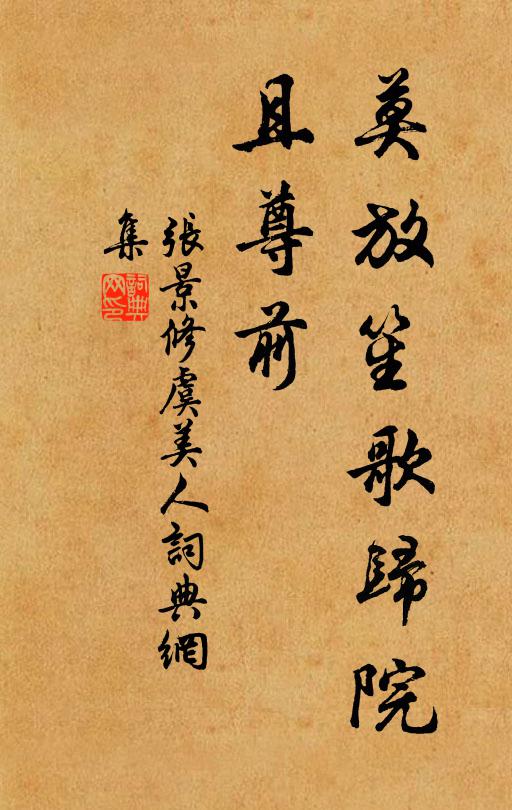 莫放笙歌歸院
且尊前
張景修虞美人詞典網
集
詞典
网印